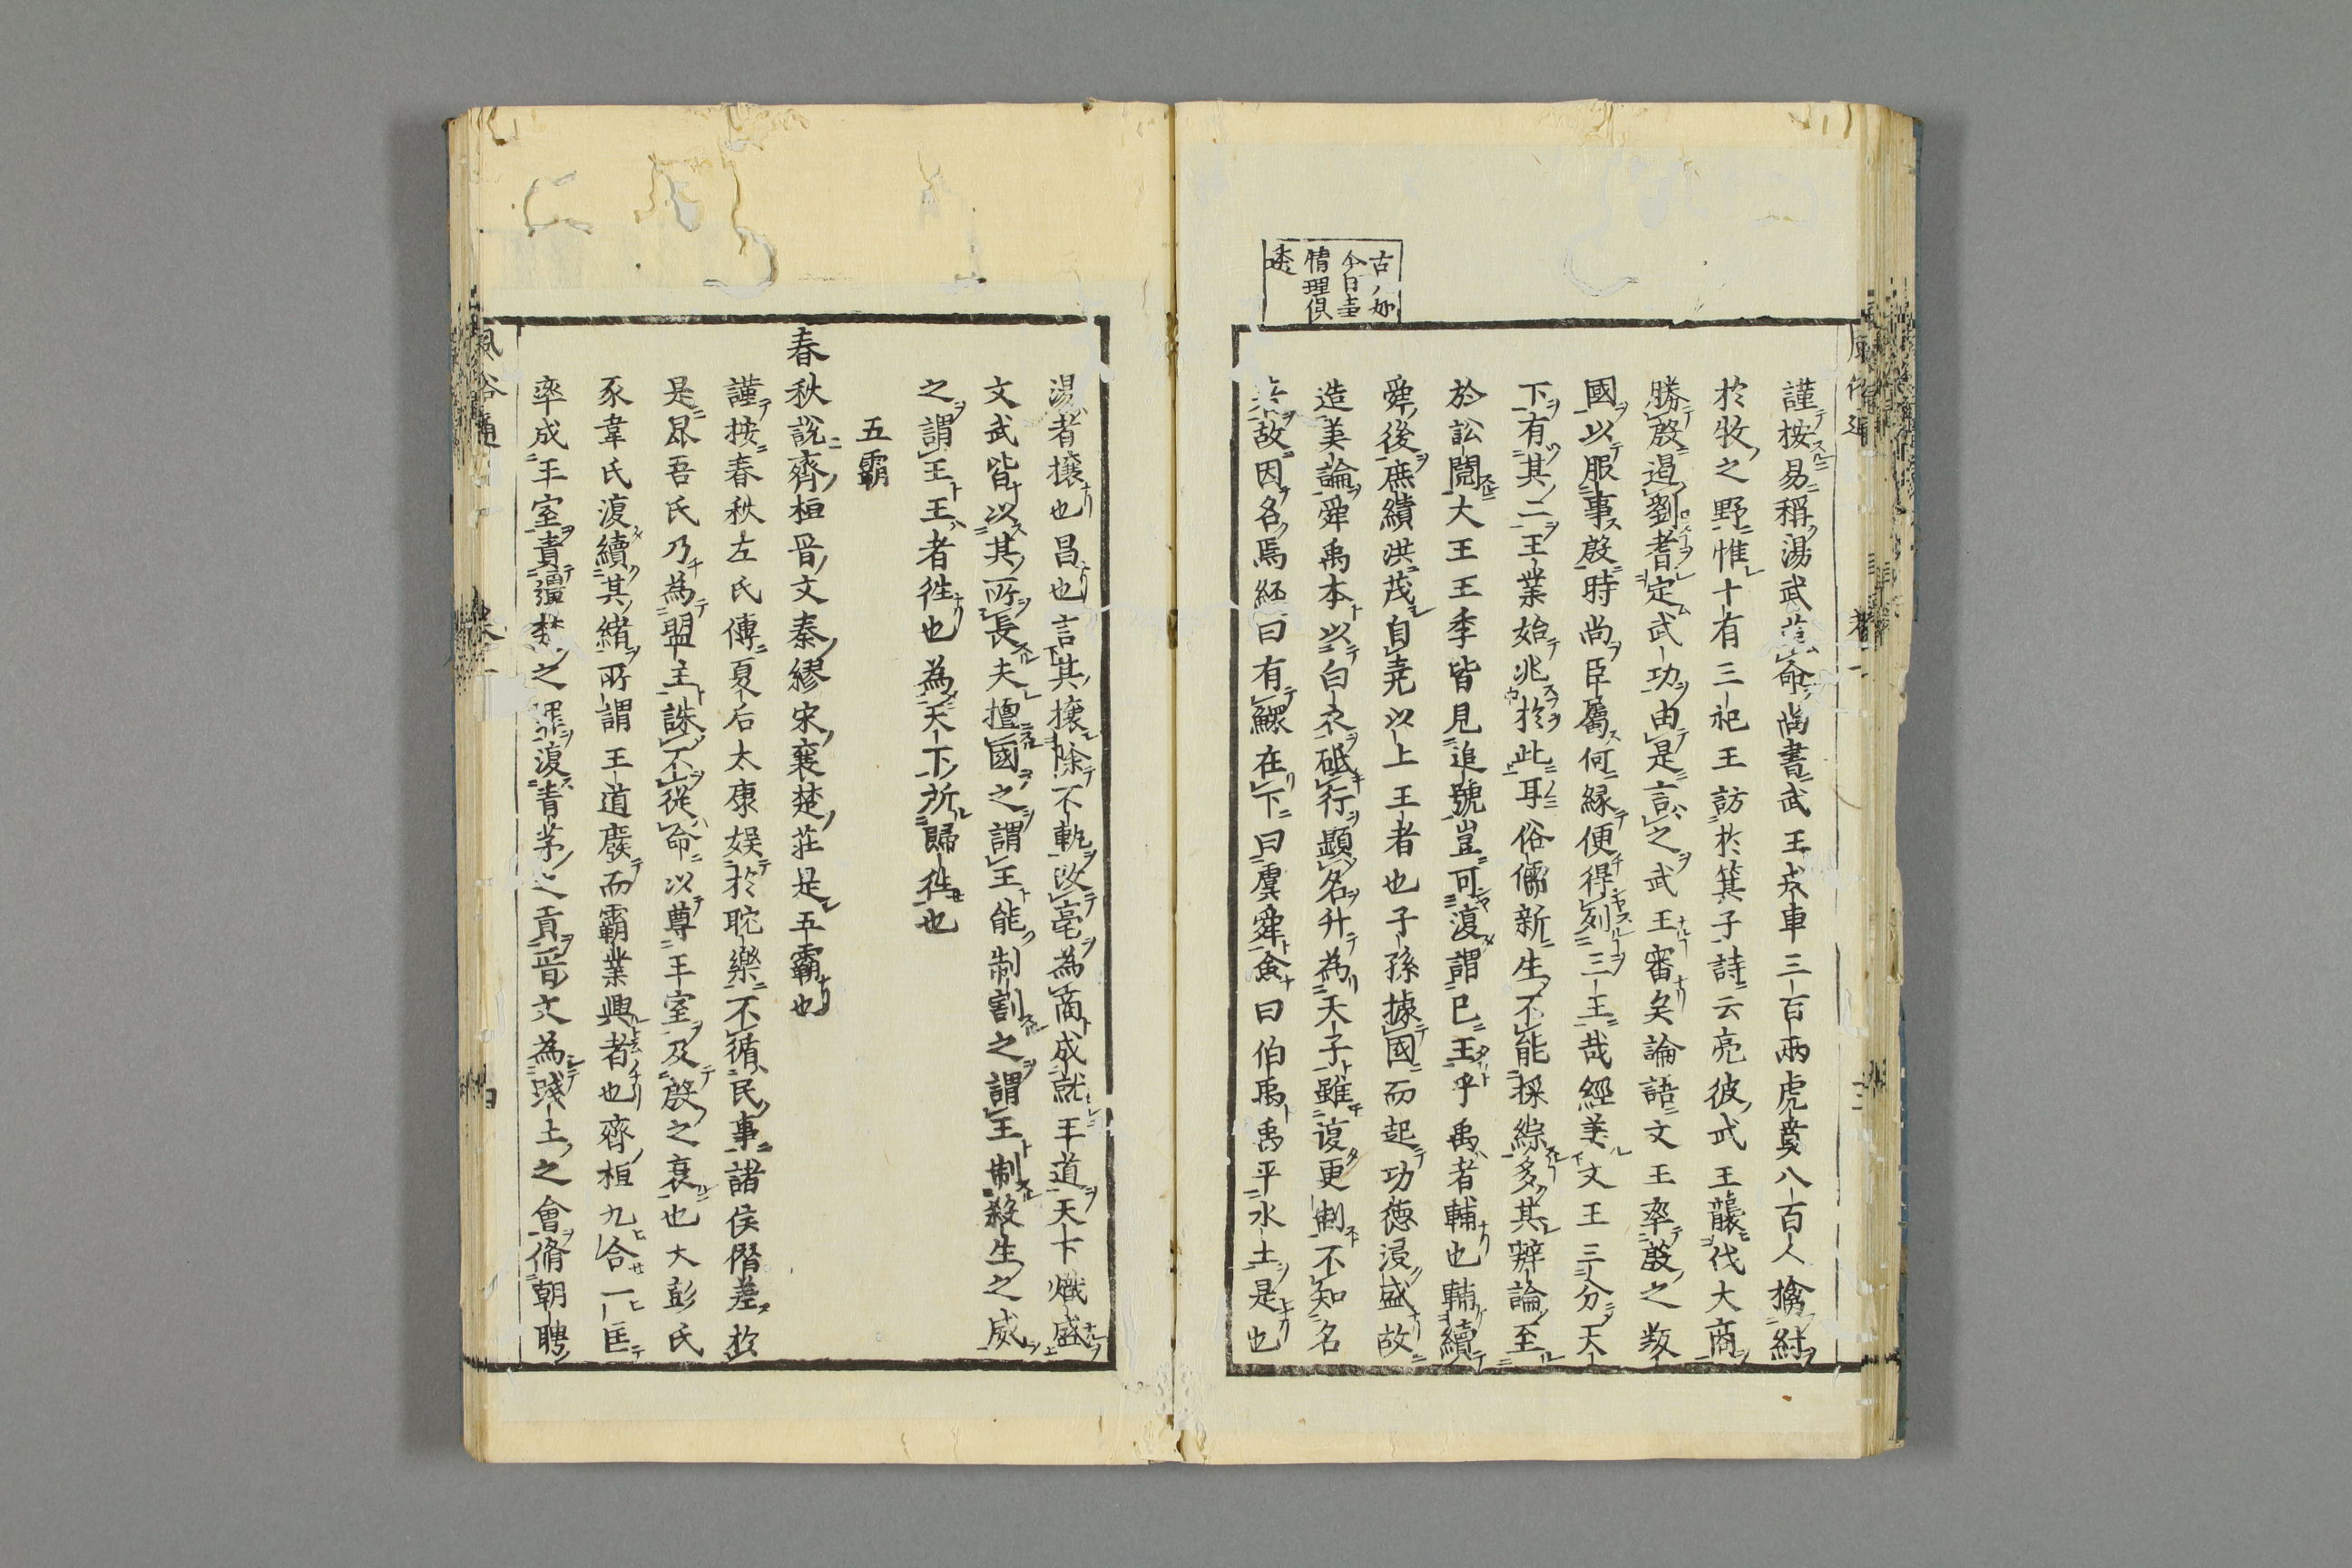 古ノ如
今日書
情理俱
謹按易稱湯武革命尚書武王戎車三百兩虎賁八百人擒紂
於牧之野惟十有三祀王訪於箕子詩云亮彼武王襲伐大商
勝殷遏劉耆定武功由是言之武王審矣論語文王率殷之叛
國以服事殷時尚臣屬何緣便得列三王哉經美文王三分天
下有其二王業始兆於此耳俗儒新生不能採綜多其辯論至
於訟鬩大王王季皆見追號豈可復謂已王乎禹者輔也輔續
舜後庶績洪茂自堯以上王者也子孫據國而起功德浸盛故
造美論舜禹本以白衣砥行顯名升為天子雖復更制不知名
故因名焉經曰有鰥在下曰虞舜僉曰伯禹禹平水土是也
湯者攘也昌也言其攘除不軌改亳為商成就王道天下熾盛
文武皆以其所長夫擅國之謂王能制割之謂王制殺生之威
之謂王王者往也為天下所歸往也
五霸
春秋說齊桓晉文秦繆宋襄楚莊是五霸也
謹按春秋左氏傳夏后太康娛於耽樂不循民事諸侯僭差於
是昆吾氏乃為盟主誅不從命以尊王室及殷之衰也大彭氏
豕韋氏復續其緒所謂王道廢而霸業興者也齊桓九合一匡
率成王室責彊楚之罪復青茅之貢晉文為踐土之會脩朝聘
風俗通